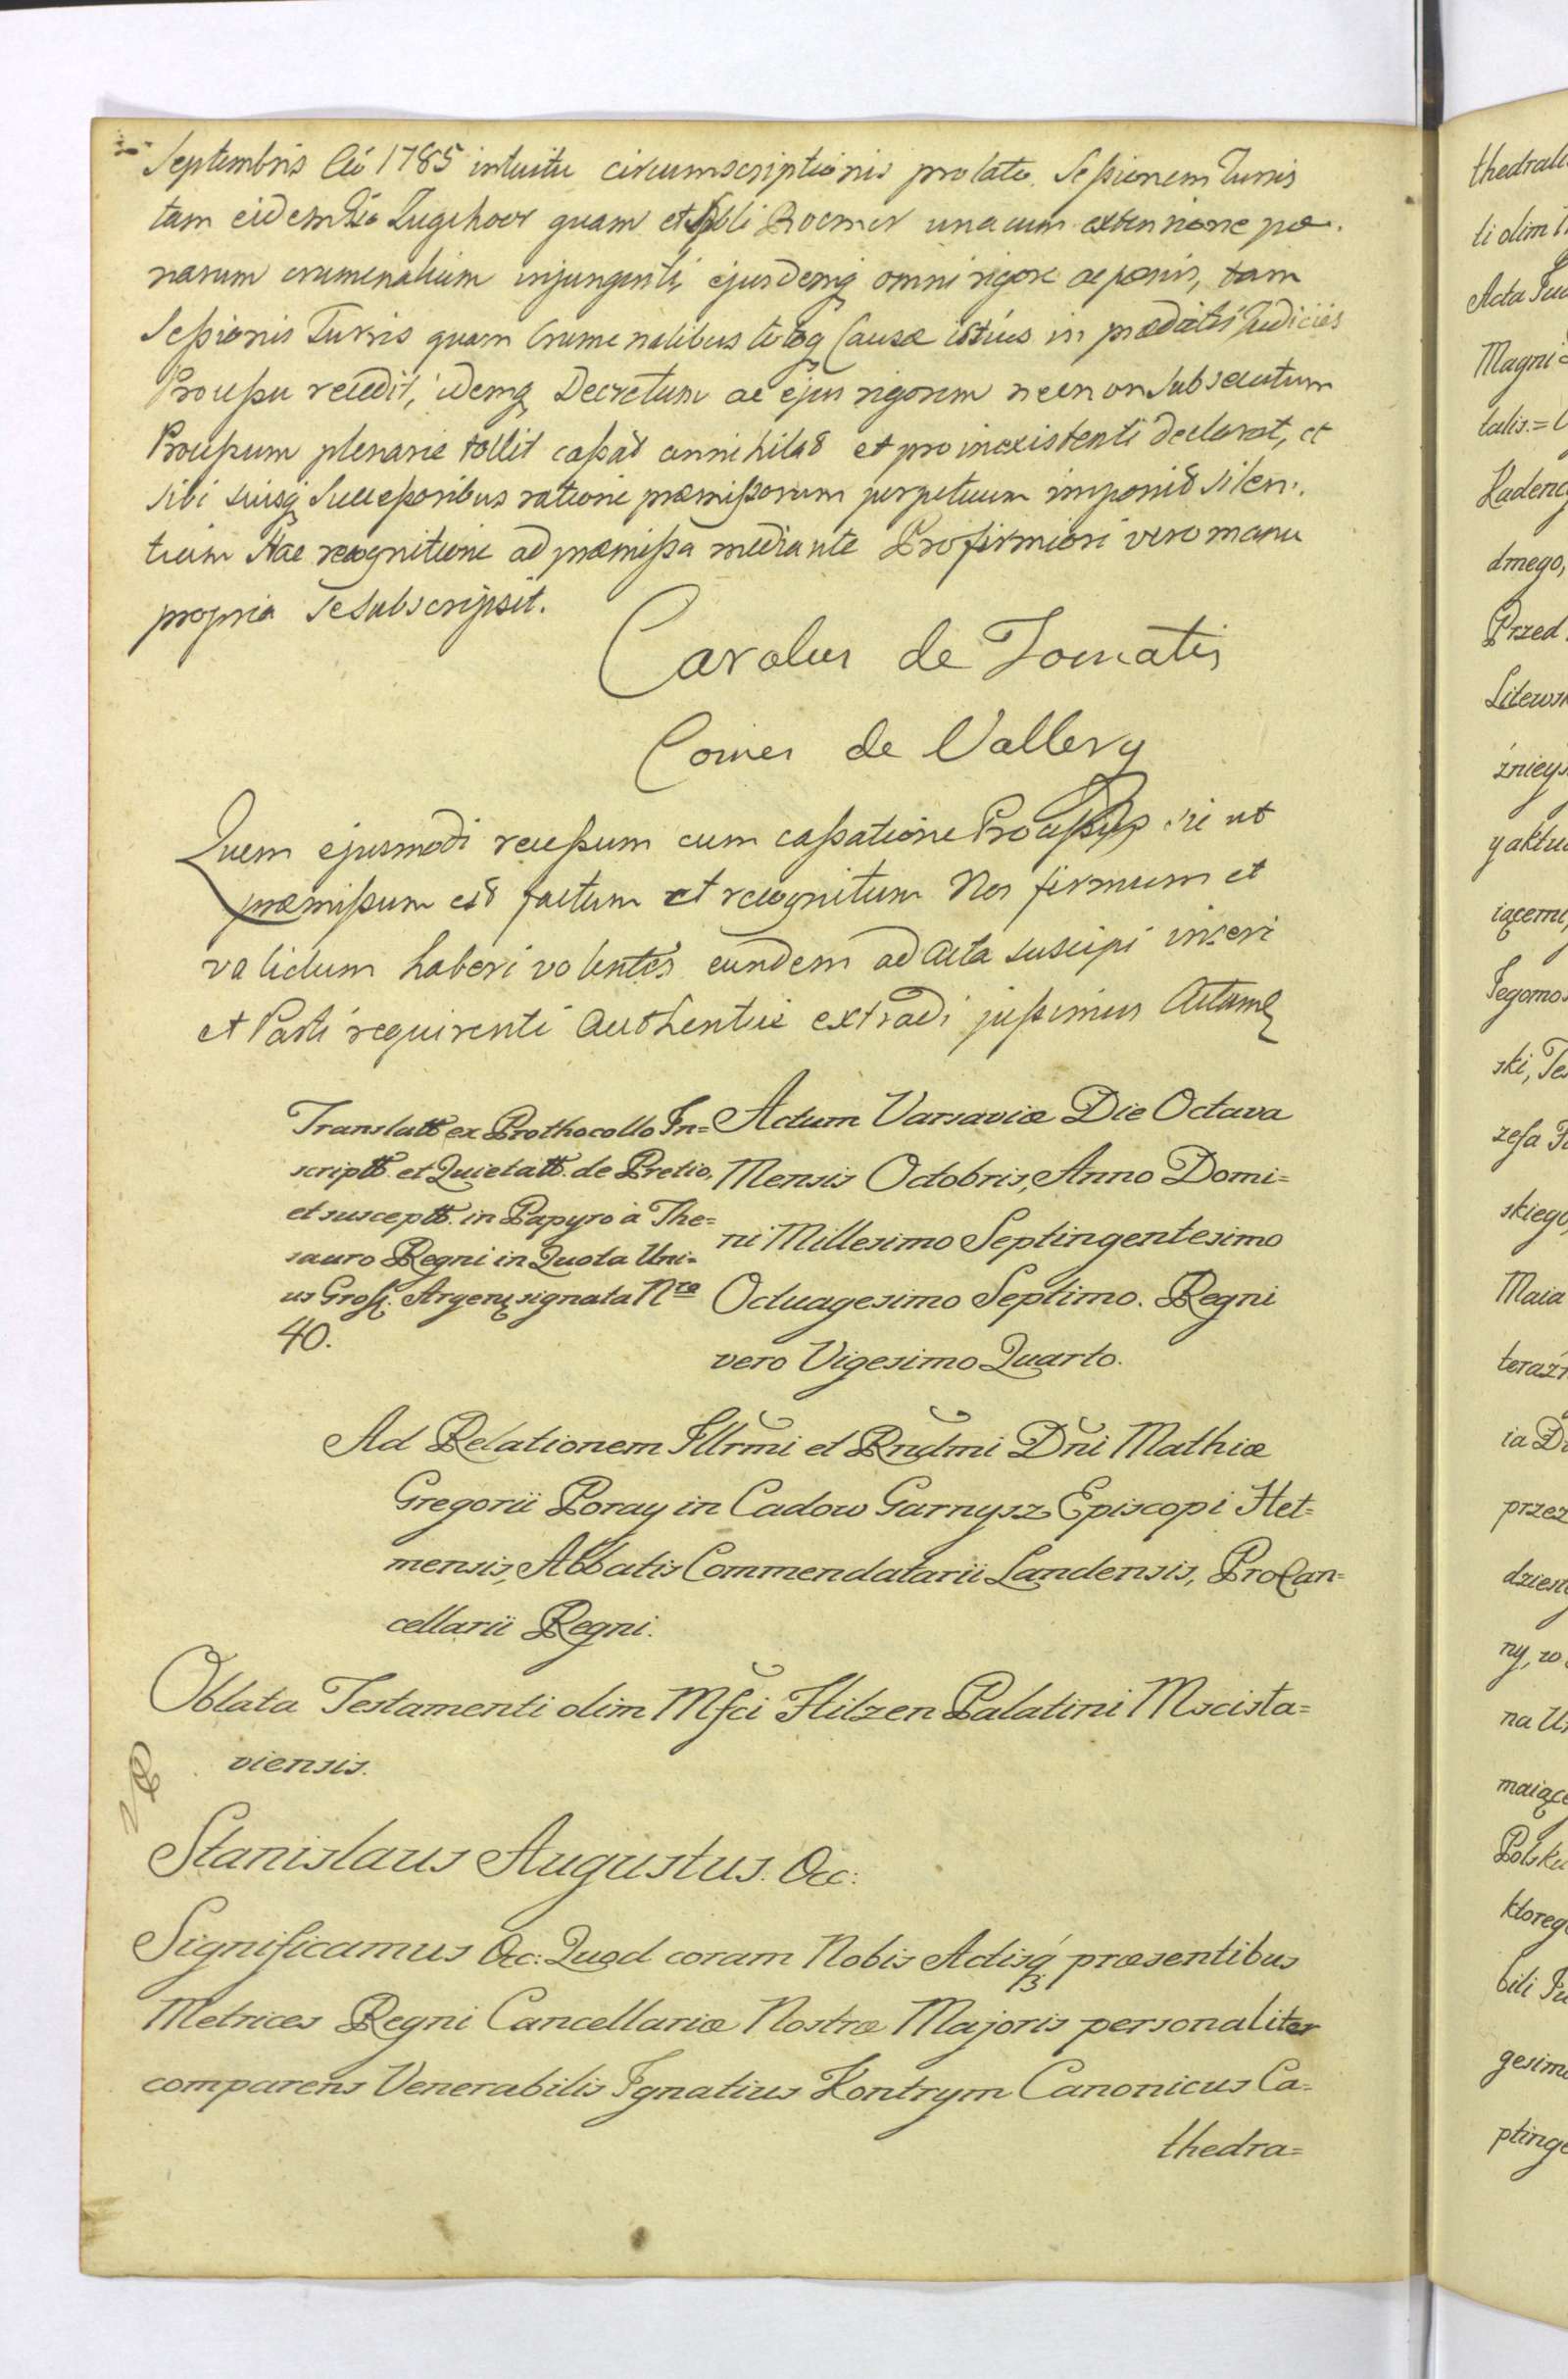 Septembris Ao 1785 intuitu circumscriptionis prolato. Sessionem Turris
tam eidem Zugehoer quam et Roemer una cum extensione pæ-
narum crumenalium injungenti, ejusdemq omni rigore ac pænis, tam
Sessionis Turris quam Crumenalibus totoq Causæ istius in prædictis Judiciis
Processu recedit, idemq Decretum ac ejus rigorem necnon subsecutum
Processum plenarie tollit cassat annihilat et pro inexistenti declarat, et
sibi suisq Successoribus ratione præmissorum perpetuum imponit silen-
tium Hac recognitione ad præmissa mediante Pro firmiori vero manu
propria se subscripsit.
Carolus de Tomatis
Comes de Vallery
Quem ejusmodi recessum cum cassatione Processus sic ut
præmissum est factum et recognitum Nos firmum et
validum haberi volentes eundem ad Acta suscipi inseri
et Parti requirenti Authentice extradi jussimus Actum
Translatt ex Prothocollo In=
scriptt. et Quietatt. de Pretio,
et susceptt. in Papyro à The=
sauro Regni in Quota Uni=
us Gross. Argen signata Nro
40.
Actum Varsaviæ Die Octava
Mensis Octobris, Anno Domi=
ni Millesimo Septingentesimo
Octuagesimo Septimo. Regni
vero Vigesimo Quarto.
Ad Relationem Illrmi et Rndmi Dni Mathiæ
Gregorii Poray in Cadow Garnysz Episcopi Het=
mensis, Abbatis Commendatarii Landensis, ProCan=
cellarii Regni.
Oblata Testamenti olim Mfci Hilzen Palatini Mscista=
viensis.
Stanislaus Augustus. &c:
Significamus &c: Quod coram Nobis Actisq præsentibus
Metrices Regni Cancellariæ Nostræ Majoris personaliter
comparens Venerabilis Ignatius Kontrym Canonicus Ca=
thedra=